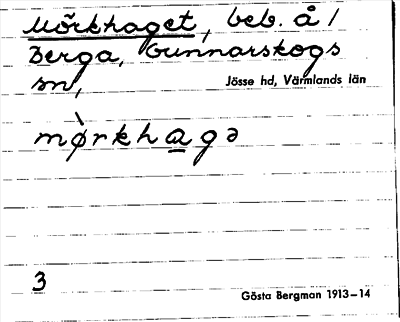 Mörkhaget, beb. å /
Berga, Gunnarskogs
sn,
Jösse hd, Värmlands län
mø̀rkhagə
3
Gösta Bergman 1913–14